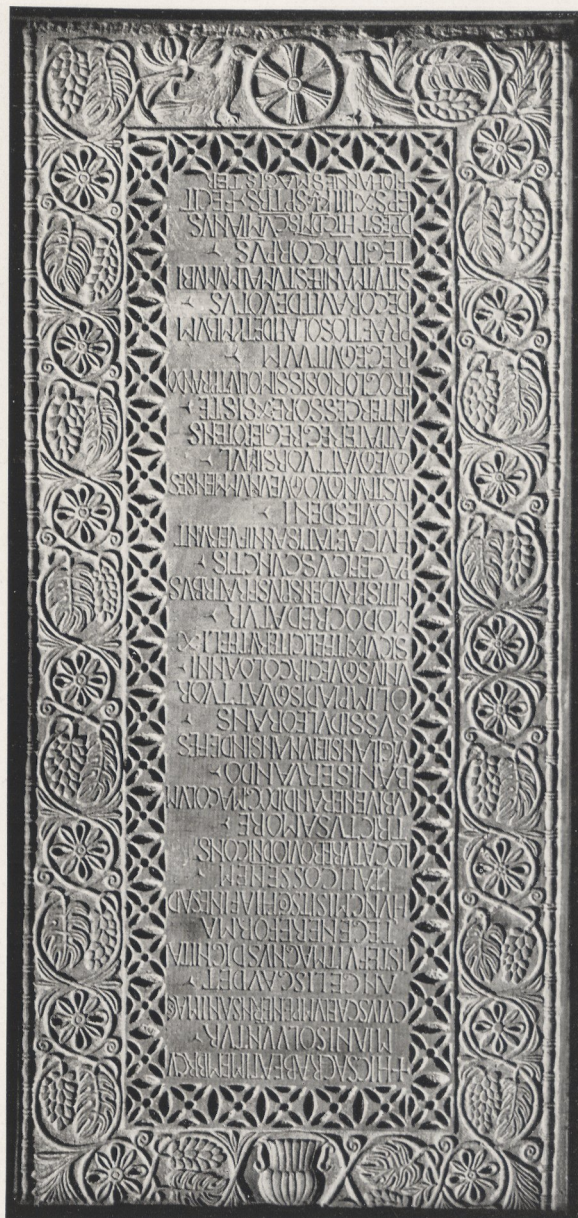 +HICSACRABEATIMEMBRCV
MIANISOLVVNTVR
CVIVSCAELVMPENETRNSANIMAC
ANGELISGAVDET
ISTEFVITMAGNVSDIGNITA
TEGENEREFORMA
HVNCMISITSCOTHIAFINESAD
ITALICOSSENEM
LOCATVREBOVIODNICONS
TRICTVSAMORE
VBIVENERANDIDOGMACOLVM
BANISERVANDO
VIGILANSIEIVNANSINDEFES
SVSSEDVLEORANS
OLIMPIADISQVATTVOR
VNIVSQVECIRCOLOANNI
SICVIXITFELICITERVTFELIX
MODOCREDATVR
MITISPRVDENSPIVSFRATRIBVS
PACIFICVSCVNCTIS
HVICAETATISANNIFVERVNT
NOVIESDENI
LVSTRVMQVOQVEVNVMMENSES
QVEQVATTVORSIMVL
ATPATEREGREGIEPOTENS
INTERCESSOREXISTE
PROGLORIOSISSIMOLIVTPRANDO
REGEQVITVVM
PRAETIOSOLAPIDETYMBVM
DECORAVITDEVOTVS
SITVTMANIFESTVMALMVMVBI
TEGITVRCORPVS
DPESTHICDMSCVMIANVS
EPSXIIIIKLSPTBRSFECIT
IOHANNESMAGISTER